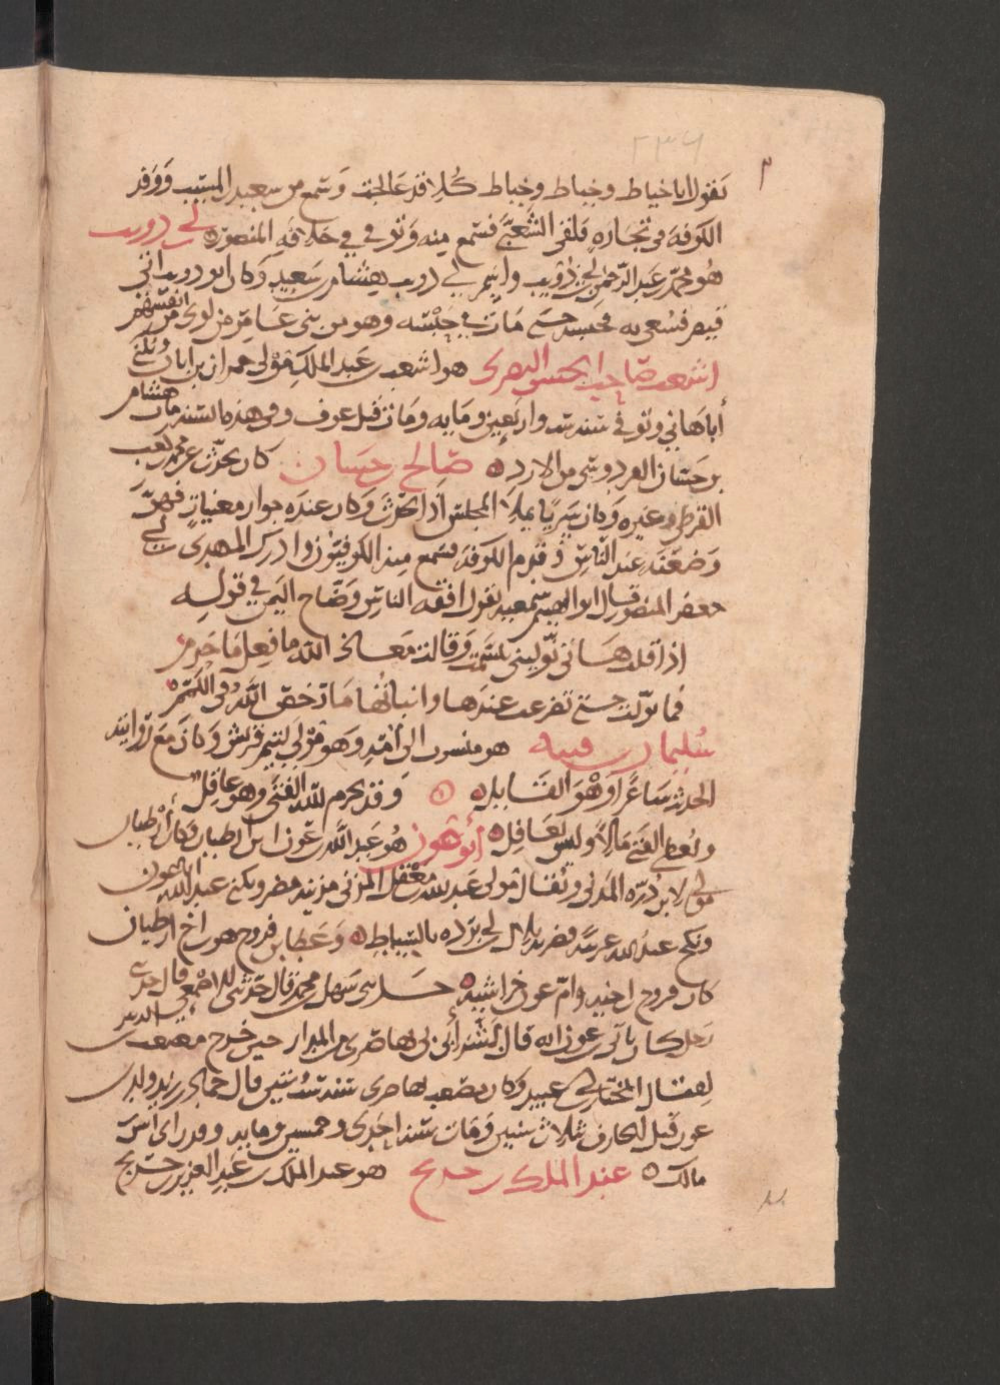 يقول انا خياط وخباط وخباط كُلا قد عالجت وسمع من سعيد المسيب ووفد
الكوفة في تجارة فلقي الشعبي فسمع منه وتوفي في خلافة المنصور ابن ابي ذويب
هو محمد عبد الرحمن ابي ذؤيب واسم ابي ذويب هشام سعيد وكان ابو ذويب اتى
قيصر فسعي به فحبسه حتى مات في حبسه وهو من بني عامر من لوي من انفسهم
اشعث صاحب الحسن البصري هو اشعث عبد الملك مولى حمران بن ابان ويكنى
أبا هاني وتوفي في سنة ست واربعين ومايه ومات قبل عوف وفي هذه السنة مات هشام
بن حسان الفردوسي من الازد ٥ صالح حسان كان يحدث عن محمد كعب
القرظي وغيره وكان سريا يملا المجلس اذا تحدث وكان عنده جوار مغنيات فهن
وضعنه عند الناس وقدم الكوفة فسمع منه الكوفيون وادرك المهدي ابي
جعفر المنصور قال ابو الهيثم سمعته يقول افقه الناس وضاح اليمن في قوله
اذا قلت هاتي نوليني تبسمت وقالت معاذ الله ما فعل ما حرم
فما نولت حتى تضرعت عندها وانباتها ما رخص الله في اللمم
سليمان قتة هو منسوب الى أمه وهو مولى لتيم قريش وكان مع روايته
الحديث شاعرا وهو القائل ٥ وقد يحرم لله الفتى وهو عاقل
ويعطي الفتى مالا وليس بعاقل ٥ ابو عون هو عبد الله عون ابن ارطبان وكان ارطبان
مولى لابن درة المدني ويقال مولى عبد الله مغفل المزني مزينة مضر ويكنى عبد الله ابا عون
ونكح عبد الله عربية فضربه بلال ابي بردة بالسياط ٥ وعطا بن فروخ هو ابن اخ ارطبان
كان فروخ اخيه وام عون خراشية ٥ حدثني سهل محمد قال حدثني الاصمعي قال حدثني
رجل كان ياتي عون انه قال بشر أبي بي هاصري من المدار حين خرج مصعب ابي الزبير
لقتال المختار ابي عبيد وكان مصعب هاصرى سنة ست وستين قال حماد بن زيد ولد ابن
عون قبل الجارف بثلاث سنين ومات سنة احدى وخمسين ومايه وقد راى انس
مالك ٥ عبد الملك جريج هو عبد الملك عبد العزيز جريج